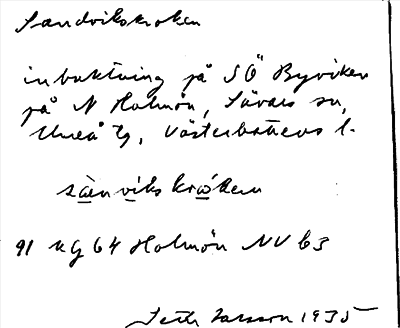 Sandvikskroken
inbuktning på SÖ Byviken
på N Holmön, Sävars sn,
Umeå tg, Västerbottens l.
sänvikskråken
91 kg 64 Holmön NV b3
Seth Larsson 1935